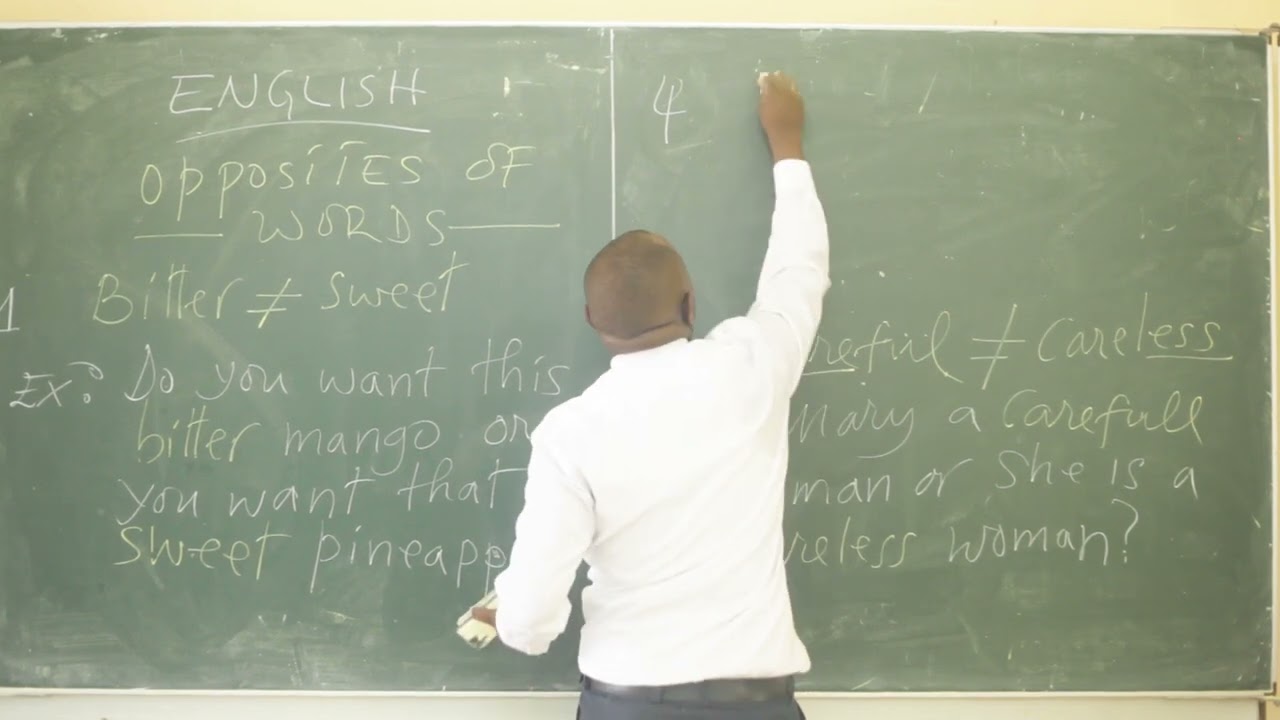 ENGLISH
OPPOSITES OF
WORDS
1 Bitter ≠ Sweet
Ex: Do you want this
bitter mango or
you want that
sweet pineapp
4
reful ≠ Careless
Mary a Carefull
man or she is a
reless woman?